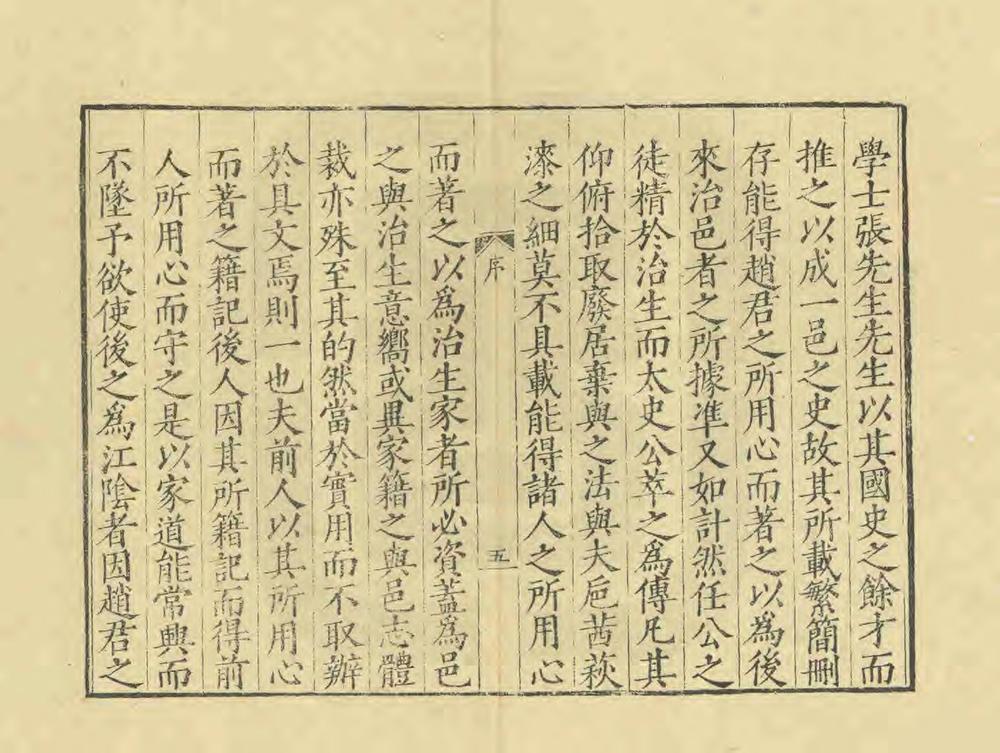 學士張先生先生以其國史之餘才而
推之以成一邑之史故其所載繁簡刪
存能得趙君之所用心而著之以為後
來治邑者之所據准又如計然任公之
徒精於治生而太史公萃之為傳凡其
仰俯拾取廢居棄與之法與夫巵茜萩
漆之細莫不具載能得諸人之所用心
序
五
而著之以為治生家者所必資蓋為邑
之與治生意嚮或異家籍之與邑志體
裁亦殊至其的然當於實用而不取辦
於具文焉則一也夫前人以其所用心
而著之籍記後人因其所籍記而得前
人所用心而守之是以家道能常興而
不墜予欲使後之為江陰者因趙君之